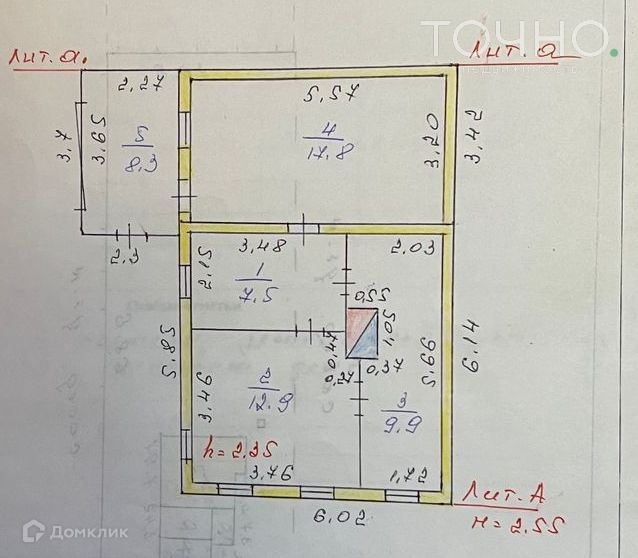 ТОЧНО.
Лит. а.
Лит. а
2,27
5,57
3,7
3,65
5
8,3
4
17,8
3,20
3,42
2,3
3,48
2,03
2,15
1
7,5
0,55
1,05
0,47
0,27
0,37
5,85
5,66
6,14
3,46
2
12,9
3
9,9
h = 2,35
3,76
1,72
6,02
Лит. А
H = 2,55
Домклик